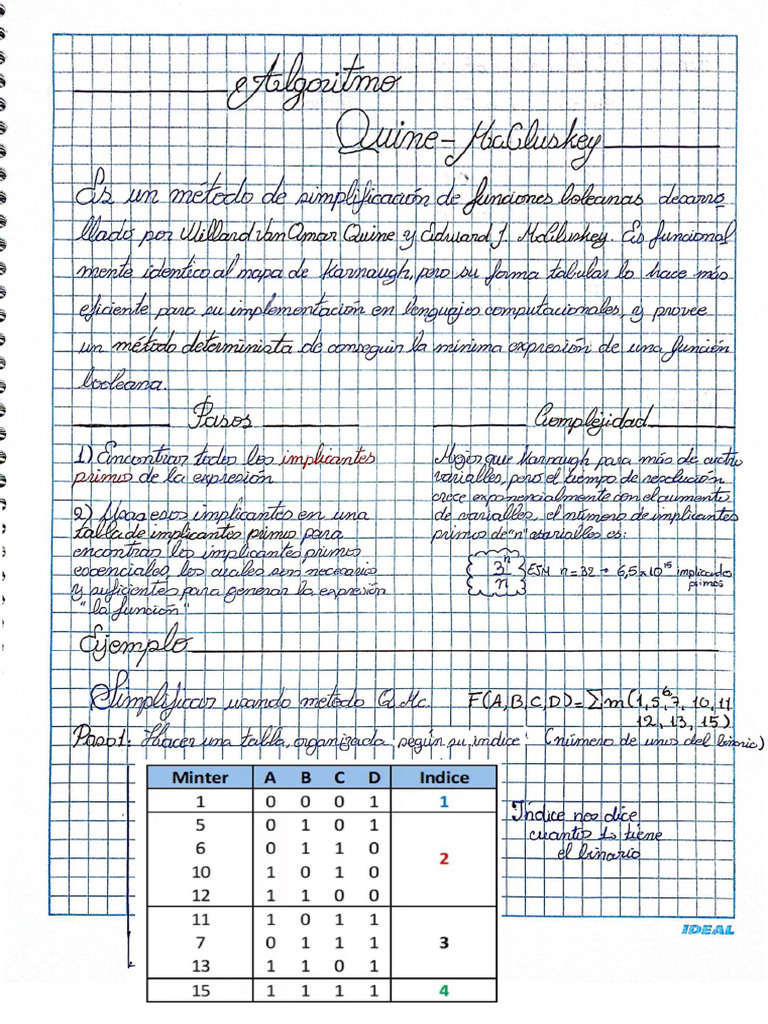 Algoritmo
Quine-McCluskey
Es un método de simplificación de funciones boleanas desarro
llado por Willard Van Omar Quine y Edward J. McCluskey. Es funcional
mente identico al mapa de Karnaugh, pero su forma tabular lo hace más
eficiente para su implementación en lenguajes computacionales, y provee
un método determinista de conseguir la mínima expresión de una función
booleana.
Pasos
1) Encontrar todos los implicantes
primos de la expresión
2) Usar esos implicantes en una
tabla de implicantes primos para
encontrar los implicantes primos
escenciales, los cuales son necesarios
y suficientes para generar la expresión
"la función"
Complejidad
Mejor que Karnaugh para más de cuatro
variables, pero el tiempo de resolución
crece exponencialmente con el aumento
de variables, el número de implicantes
primos de "n" variables es:
3ⁿ
n
EJM n=32 → 6,5 x 10¹⁵ implicantes
primos
Ejemplo
Simplificar usando metodo Q.Mc. F(A,B,C,D)=∑m(1,5,6,7,10,11
12, 13, 15)
Paso1: Hacer una tabla, organizada, según su indice (número de unos del binario)
Minter A B C D Indice
1 0 0 0 1 1
5 0 1 0 1
6 0 1 1 0
2
10 1 0 1 0
12 1 1 0 0
11 1 0 1 1
7 0 1 1 1 3
13 1 1 0 1
15 1 1 1 1 4
Indice nos dice
cuantos 1s tiene
el binario
IDEAL